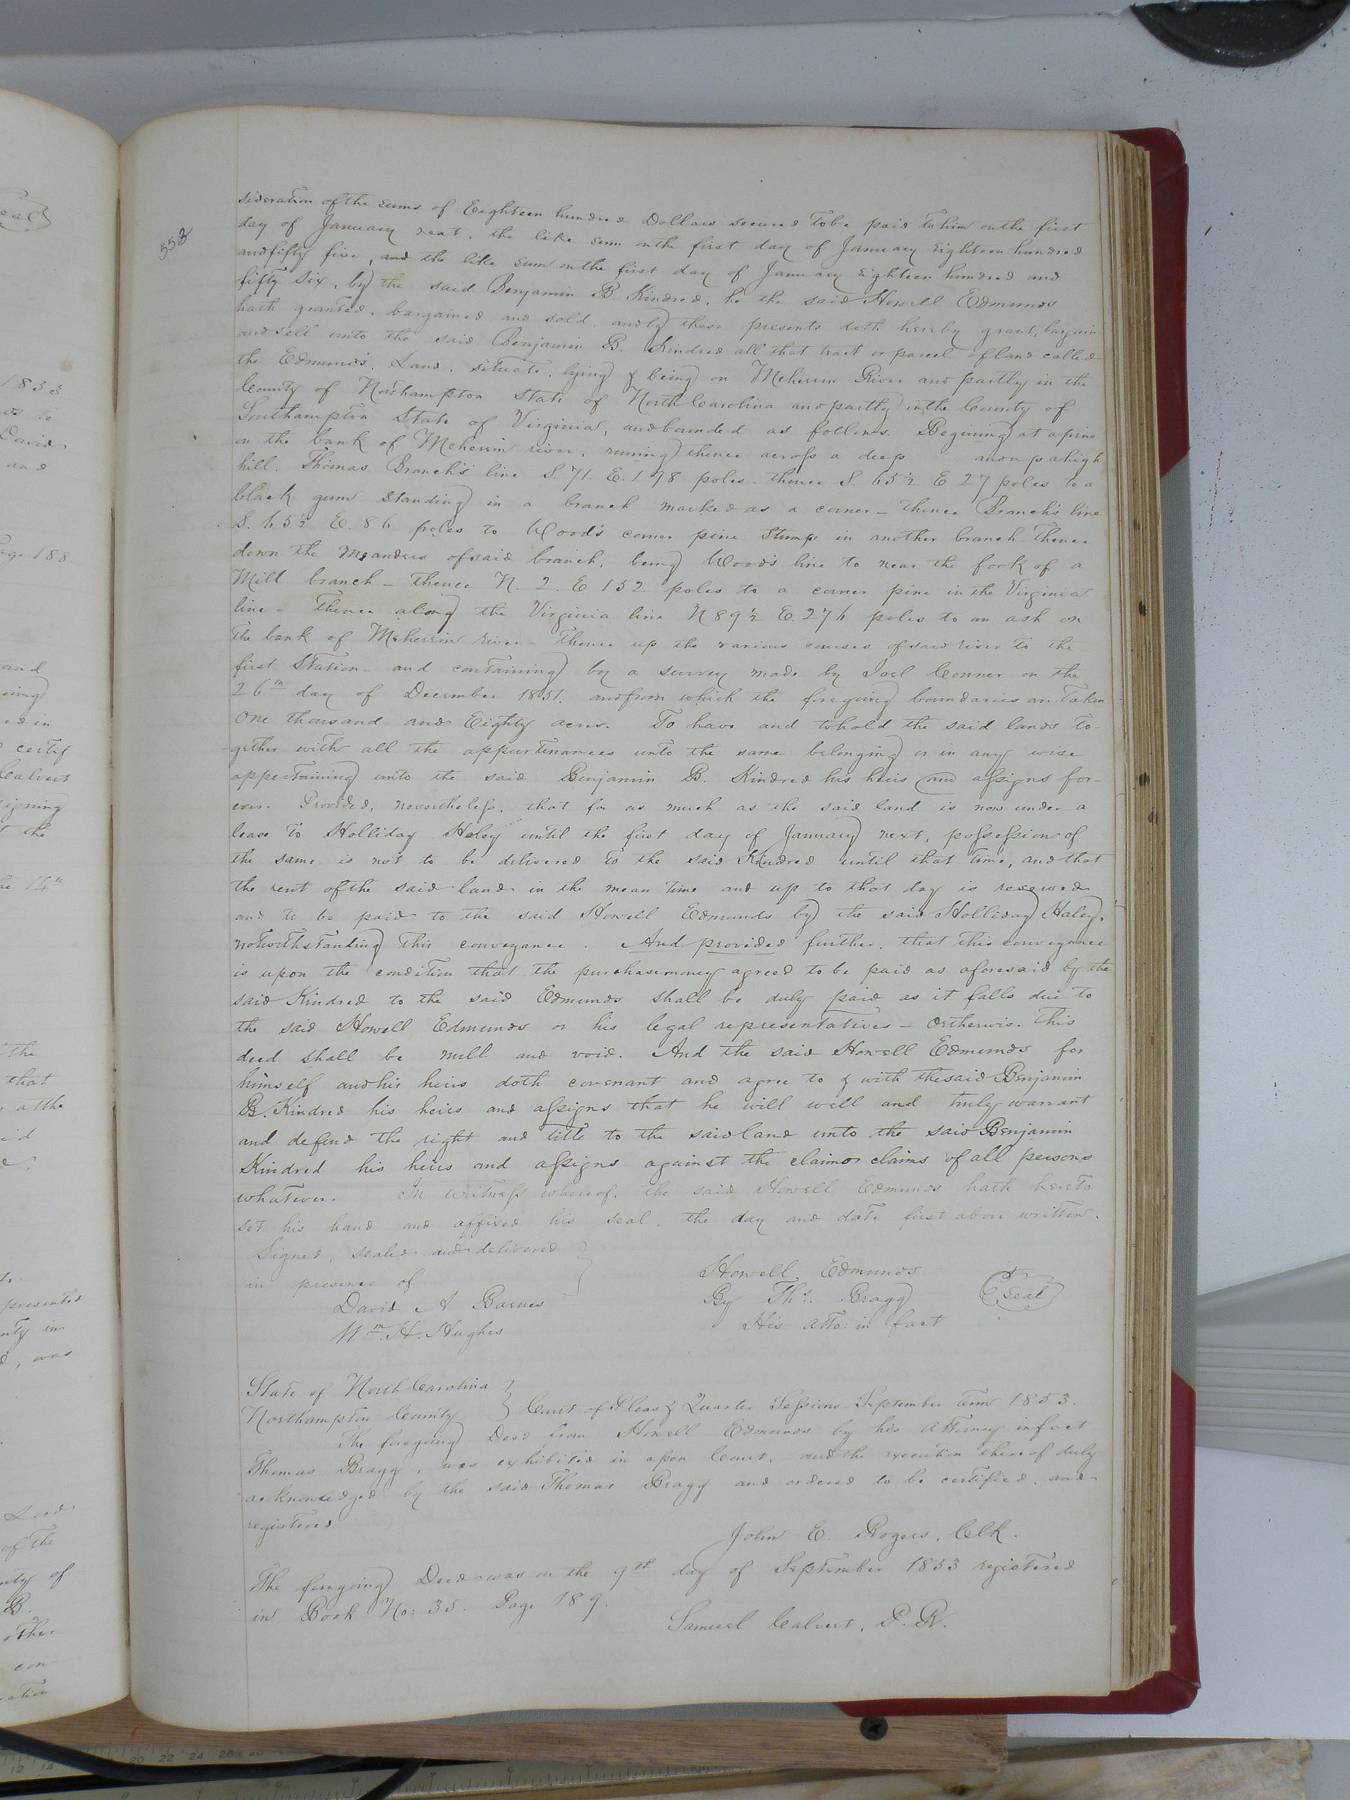 553
sideration of the sums of Eighteen hundred Dollars secured to be paid to him on the first
day of January next, the like sum on the first day of January Eighteen hundred
and fifty five, and the like sum on the first day of January Eighteen hundred and
fifty six, by the said Benjamin B. Kindred, he the said Howell Edmunds
hath granted, bargained and sold, and by these presents doth hereby grant, bargain
and sell unto the said Benjamin B. Kindred all that tract or parcel of land called
the Edmunds' Land, situate, lying & being on Meherrin River and partly in the
County of Northampton State of North Carolina and partly in the County of
Southampton State of Virginia, and bounded as follows. Begining at a pine
on the bank of Meherrin river, runing thence across a deep and up a high
hill, Thomas Branch's line S. 71. E. 198 poles. thence S. 65½ E 27 poles to a
black gum standing in a branch marked as a corner – thence Branch's line
S. 65½ E. 86 poles to Wood's corner pine Stump in another branch Thence
down the Meanders of said branch, being Wood's line to near the fork of a
Mill branch – thence N. 2. E 152 poles to a corner pine in the Virginia
line – Thence along the Virginia line N 89½ E. 276 poles to an ash on
the bank of Meherrin river – thence up the various courses of said river to the
first Station – and containing by a survey made by Joel Conner on the
26th day of December 1851, and from which the foregoing boundaries are taken
One thousand and Eighty acres. To have and to hold the said lands to-
gether with all the appurtenances unto the same belonging or in any wise
appertaining unto the said Benjamin B. Kindred his heirs and assigns for-
ever. Provided, nevertheless, that for as much as the said land is now under a
lease to Holliday Haley until the first day of January next, possession of
the same is not to be delivered to the said Kindred until that time, and that
the rent of the said land in the mean time and up to that day is reserved
and to be paid to the said Howell Edmunds by the said Holliday Haley,
notwithstanding this conveyance. And provided further, that this conveyance
is upon the condition that the purchase money agreed to be paid as aforesaid by the
said Kindred to the said Edmunds shall be duly paid as it falls due to
the said Howell Edmunds or his legal representatives – Otherwis. this
deed shall be null and void. And the said Howell Edmunds for
himself and his heirs doth covenant and agree to & with the said Benjamin
B. Kindred his heirs and assigns that he will well and truly warrant
and defend the right and title to the said land unto the said Benjamin
Kindred his heirs and assigns against the claim or claims of all persons
whatever. In witness whereof, the said Howell Edmunds hath hereto
set his hand and affixed his seal, the day and date first above written.
Signed, sealed and delivered
in presence of
David A Barnes
Wm. H. Hughes
Howell Edmunds
By Ths. Bragg
His atto: in fact
Seal
State of North Carolina
Northampton County
Court of Pleas & Quarter Sessions September Term 1853.
The foregoing Deed from Howell Edmunds by his Attorney in fact
Thomas Bragg, was exhibited in open Court, and the execution thereof duly
acknowledged by the said Thomas Bragg and ordered to be certified and
registered
John E. Rogers, Clk.
The foregoing Deed was on the 9th day of September 1853 registered
in Book No: 35. Page 189.
Samuel Calvert, P. R.